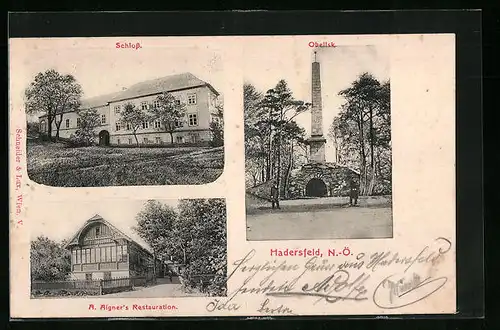 Schloß.
Obelisk.
Schneider & Lux, Wien, V.
Hadersfeld, N.-Ö.
A. Aigner's Restauration.
Herzlichen Gruss aus Hadersfeld
Ida